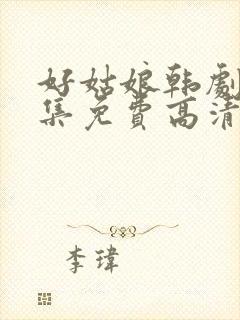 好姑娘韩劇
集免费高清
李瑋